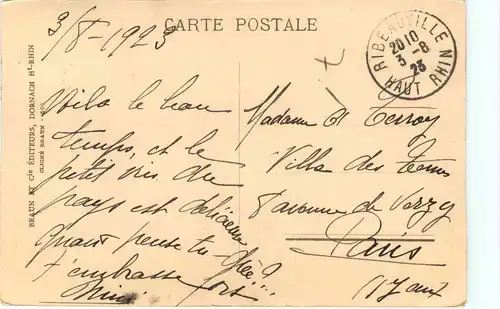 3/8-1923
CARTE POSTALE
RIBEAUVILLE HAUT RHIN
20 10
3 -8
23
BRAUN ET Cie ÉDITEURS, DORNACH Ht-RHIN
CLICHÉ BRAUN
le beau
temps, et le
petit vin du
pays est délicieux
Quand penses tu
t'embrasse fort
Mimi
Madame Terroy
Villa des Ternes
avenue de Verzy
Paris
(17